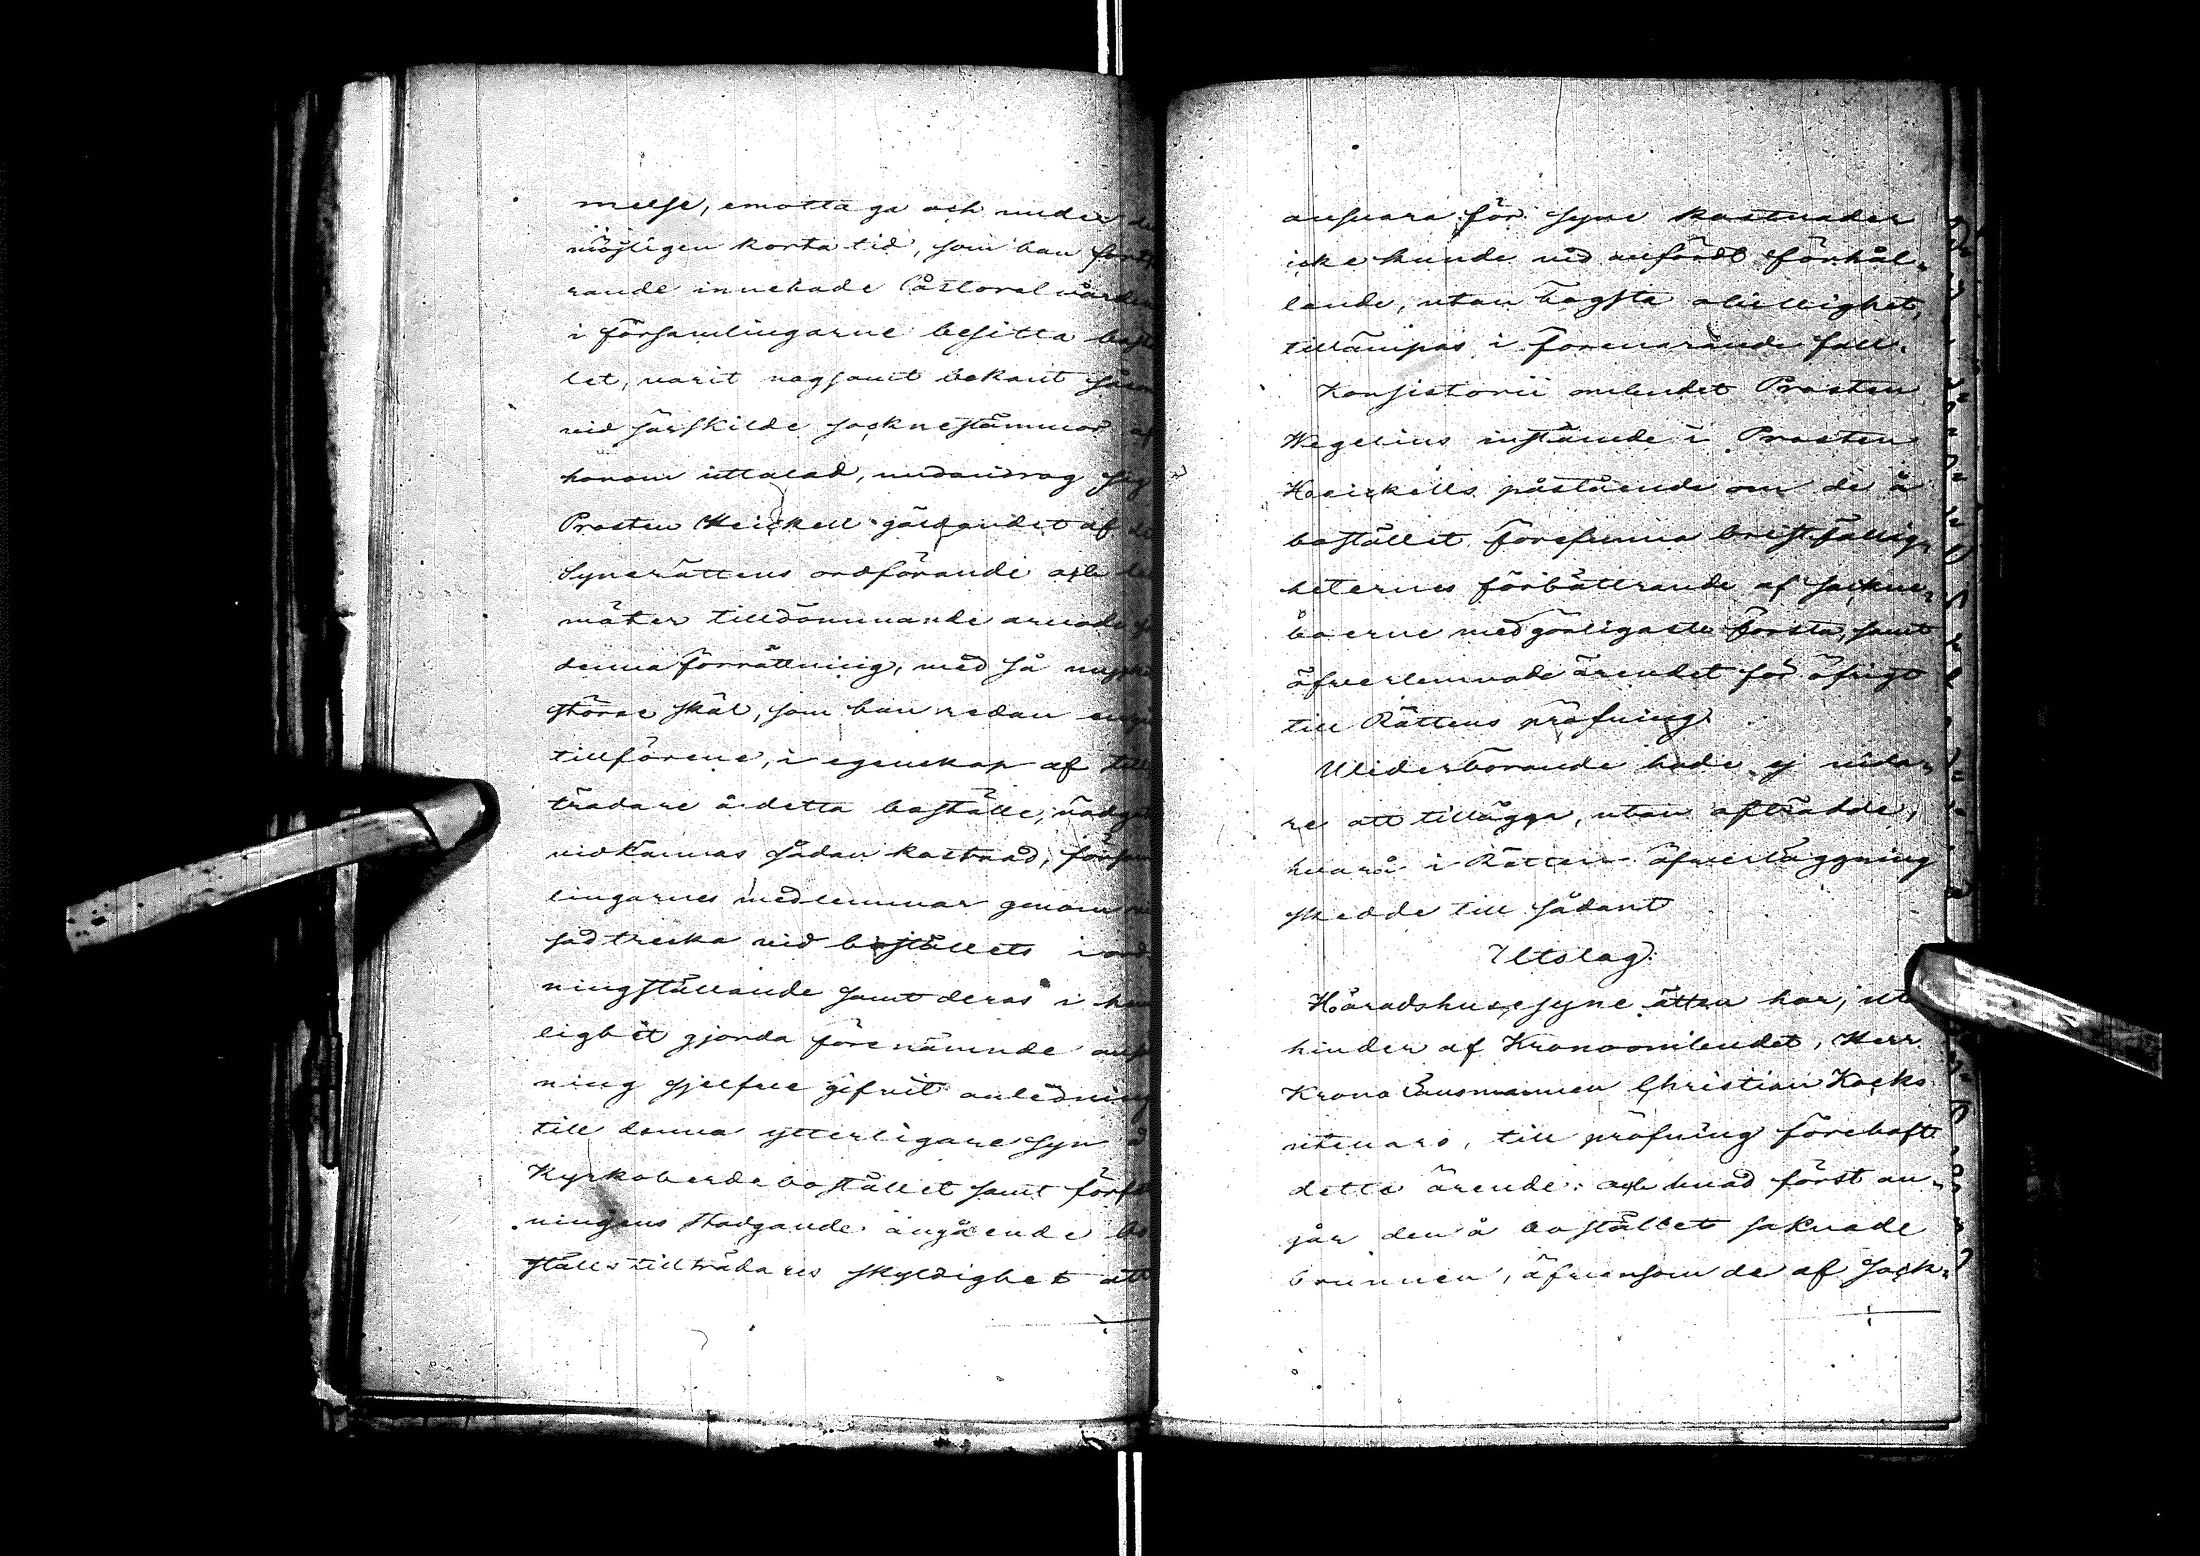 melse, emottaga och under de
möjligen korta tid, som han fort
rande innehade Pastoralvården
i församlingarne besitta bostä
let, varit nogsamt bekant såsom
vid särskilde socknestämmor af
honom uttalad, undandrog sig
Prosten Heickell gäldandet af de
Synerättens ordförande och le
möter tilldömmande arvode för
denna förrättning, med så mycke
större skäl, som han redan engå
tillförene, i egenskap af till
trädare å detta boställe, nödga
vidkännas sådan kostnad, försam
lingarnes medlemmar genom
sad treska vid boställets i ord
ningställande samt deras i
lighet gjorda förenämnde
ning sjelfve gifvit anledning
till denna ytterligare syn å
Kyrkoherdebostället samt förfat
ningens stadgande angående bo
ställs tillträdares skyldighet att
ansvara för syne kostnader
icke kunde vid anfördt förhål-
lande, utan högsta obillighet,
tillämpas i förevarande fall.
Konsistorii ombudet Prosten
Wegelius instämde i Prosten
Heickells påstående om de å
bostället förefunna bristfällig-
heternes förbättrande af sockne-
boerne med görligaste första, samt
öfverlemnade ärendet för öfrigt
till Rättens pröfning.
Vederbörande hade ej vida-
re att tillägga, utan afträdde,
hvarå i Rätten öfverläggning
skedde till sådant
Utslag:
Häradshusesynerätten har, utan
hinder af Kronoombudet, Herr
Krono Länsmannen Christian Kocks
utevaro, till pröfning förehaft
detta ärende: och hvad först an-
går den å bostället saknade
brunnen, äfvensom de af Sock-